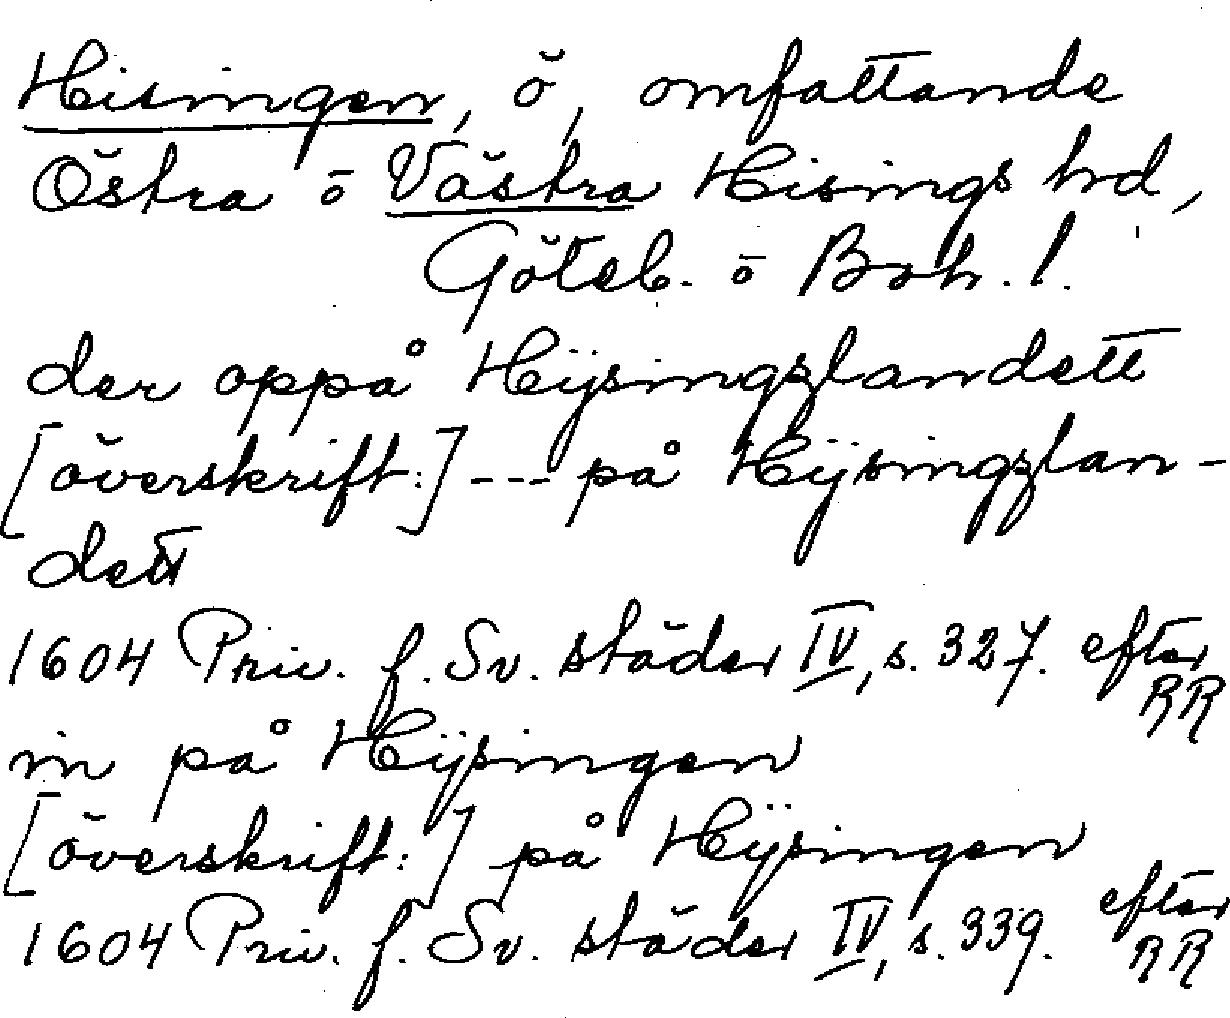 Hisingen, ö, omfattande
Östra o Västra Hisings hrd,
Göteb. o Boh. l.
der oppå Hÿsingzlandett
[överskrift:] --- på Hÿsingzlan-
dett
1604 Priv. f. Sv. städer IV, s. 327. efter
RR
in på Hÿsingen
[överskrift:] på Hÿsingen
1604 Priv. f. Sv. städer IV, s. 339. efter
RR